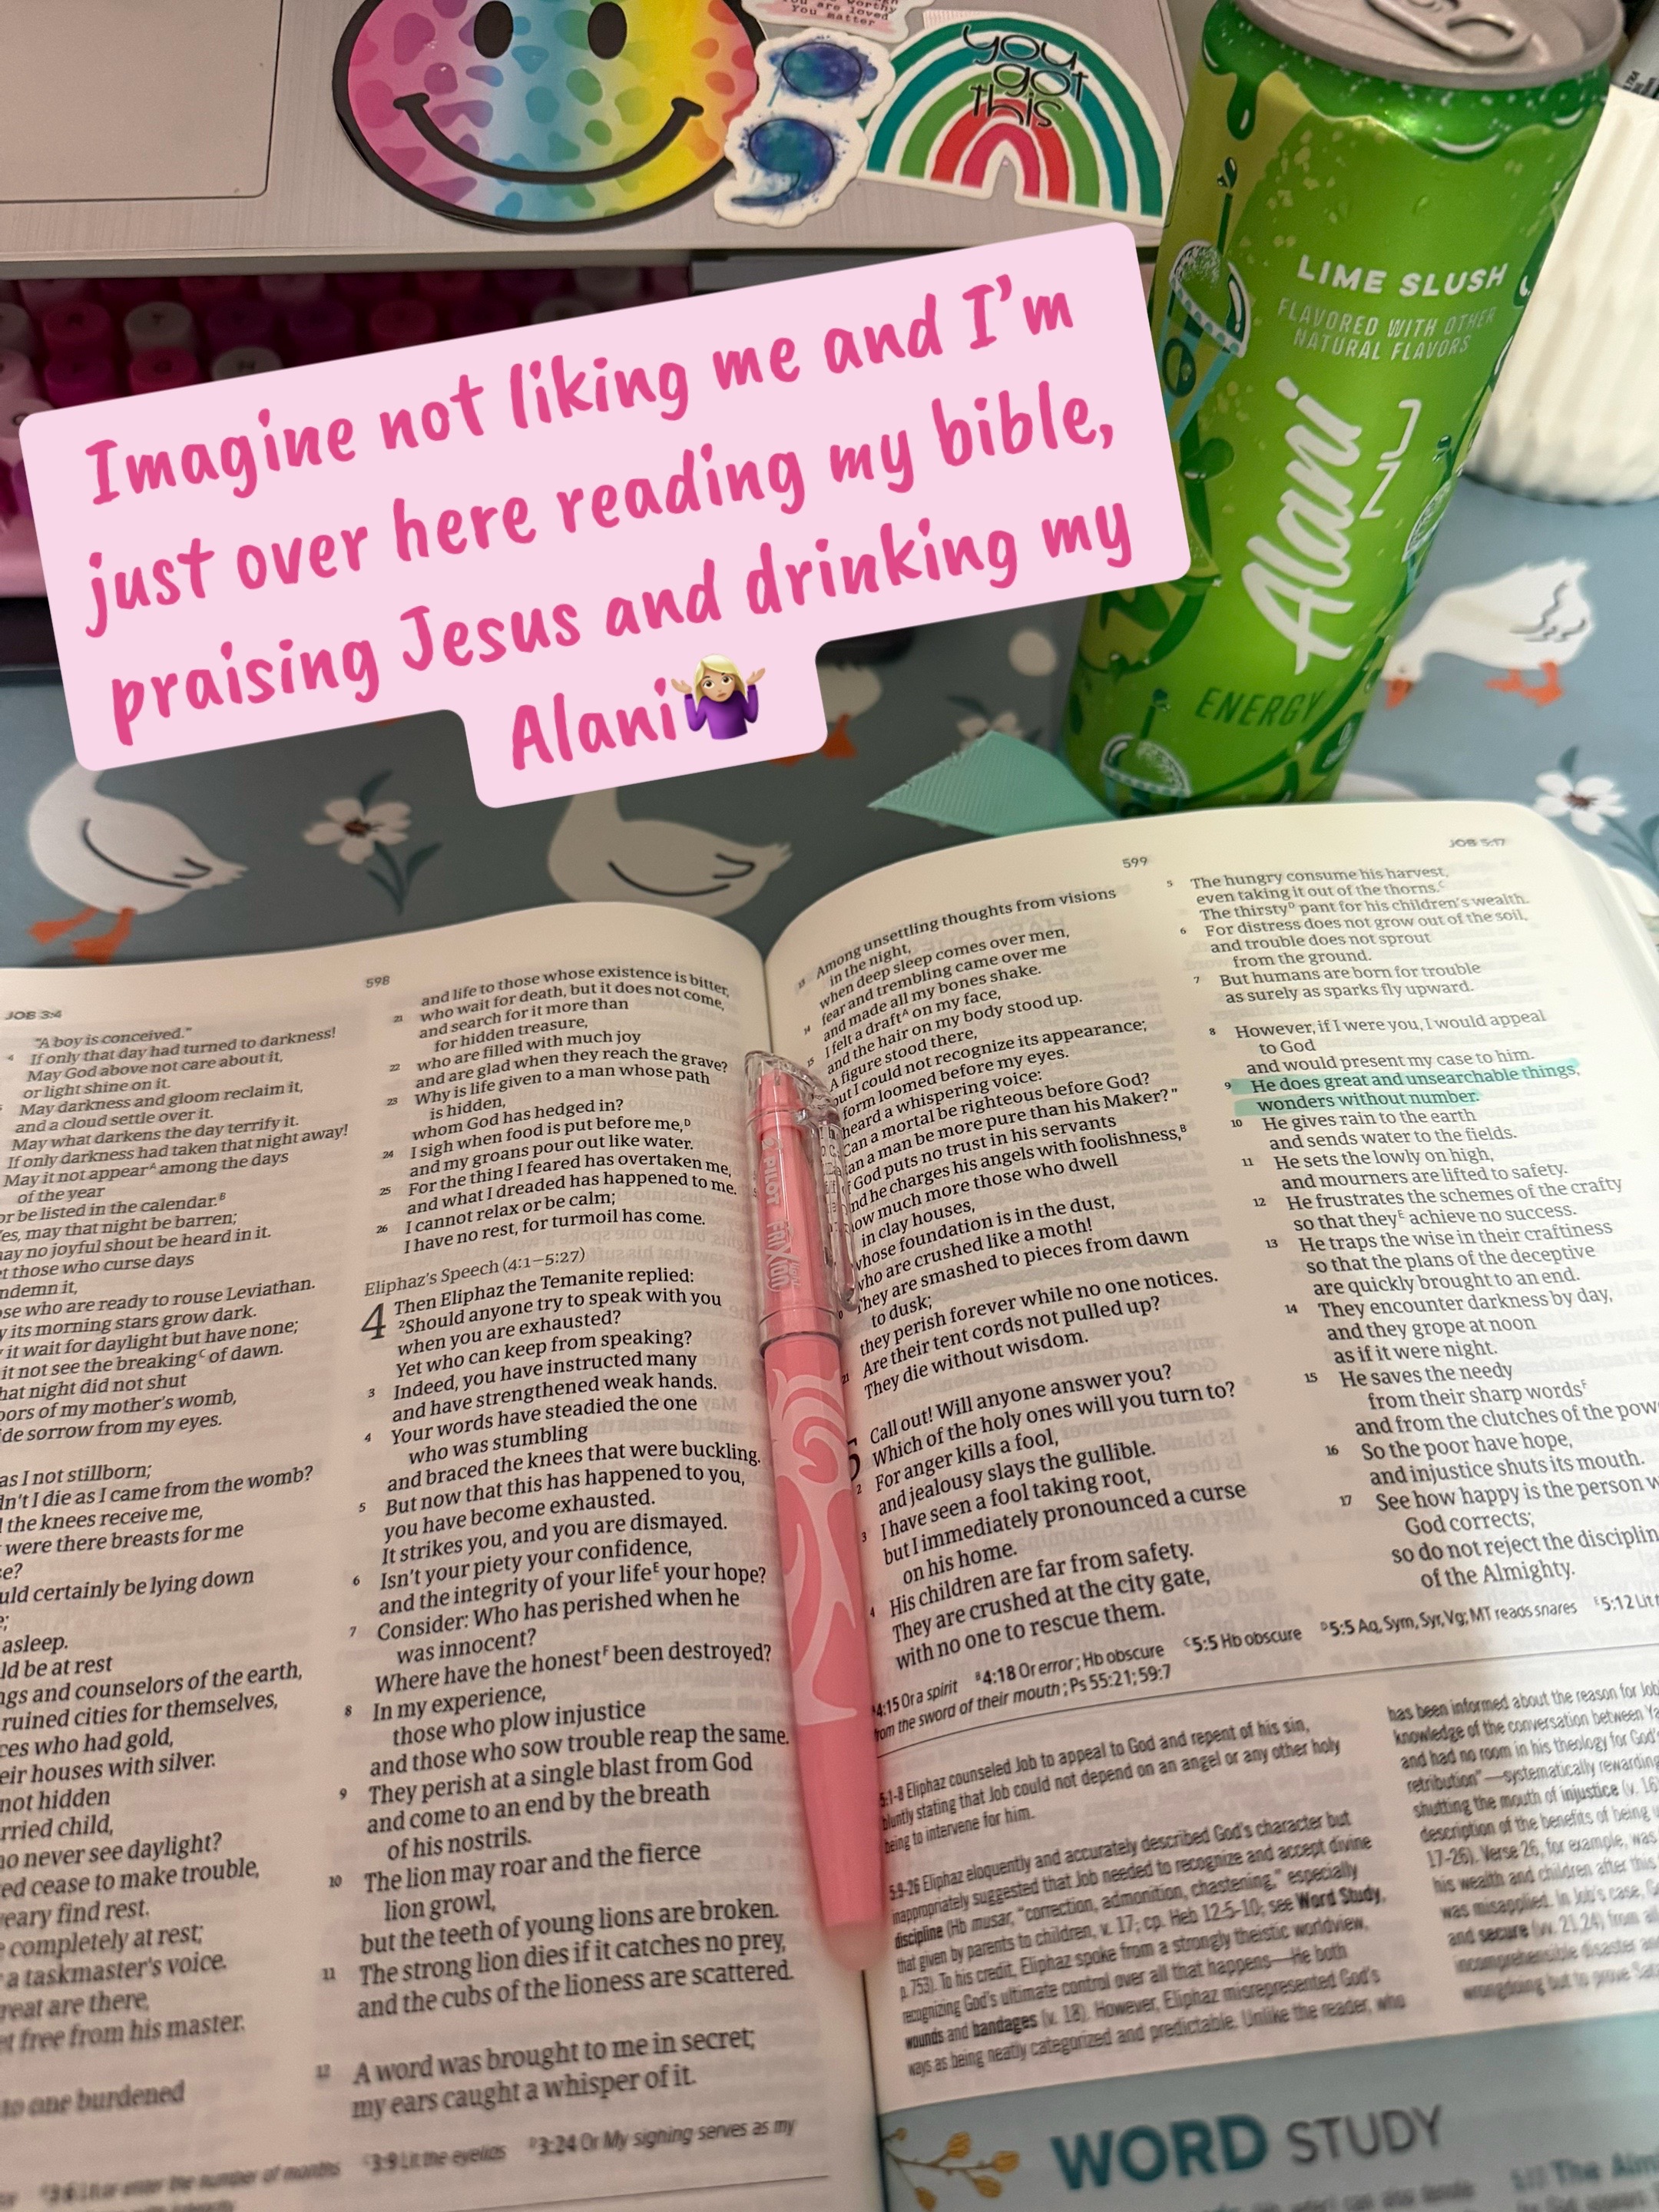 You are loved
You matter
you
got
this
LIME SLUSH
FLAVORED WITH OTHER
NATURAL FLAVORS
Alani
ENERGY
Imagine not liking me and I'm
just over here reading my bible,
praising Jesus and drinking my
Alani🤷🏼‍♀️
JOB 3:4
"A boy is conceived."
4 If only that day had turned to darkness!
May God above not care about it,
or light shine on it.
May darkness and gloom reclaim it,
and a cloud settle over it.
May what darkens the day terrify it.
If only darkness had taken that night away!
May it not appearᴬ among the days
of the year
or be listed in the calendar.ᴮ
may that night be barren;
may no joyful shout be heard in it.
those who curse days
those who are ready to rouse Leviathan.
its morning stars grow dark.
it wait for daylight but have none;
it not see the breakingᶜ of dawn.
that night did not shut
doors of my mother's womb,
sorrow from my eyes.
was I not stillborn;
didn't I die as I came from the womb?
the knees receive me,
were there breasts for me
would certainly be lying down
asleep.
be at rest
and counselors of the earth,
ruined cities for themselves,
who had gold,
their houses with silver.
not hidden
child,
who never see daylight?
cease to make trouble,
weary find rest.
completely at rest;
a taskmaster's voice.
great are there,
from his master.
to one burdened
598
and life to those whose existence is bitter,
21 who wait for death, but it does not come,
and search for it more than
for hidden treasure,
22 who are filled with much joy
and are glad when they reach the grave?
23 Why is life given to a man whose path
is hidden,
whom God has hedged in?
24 I sigh when food is put before me,ᴰ
and my groans pour out like water.
25 For the thing I feared has overtaken me,
and what I dreaded has happened to me.
26 I cannot relax or be calm;
I have no rest, for turmoil has come.
Eliphaz's Speech (4:1–5:27)
4 Then Eliphaz the Temanite replied:
2 Should anyone try to speak with you
when you are exhausted?
Yet who can keep from speaking?
3 Indeed, you have instructed many
and have strengthened weak hands.
4 Your words have steadied the one
who was stumbling
and braced the knees that were buckling.
5 But now that this has happened to you,
you have become exhausted.
It strikes you, and you are dismayed.
6 Isn't your piety your confidence,
and the integrity of your lifeᴱ your hope?
7 Consider: Who has perished when he
was innocent?
Where have the honestꟳ been destroyed?
8 In my experience,
those who plow injustice
and those who sow trouble reap the same.
9 They perish at a single blast from God
and come to an end by the breath
of his nostrils.
10 The lion may roar and the fierce
lion growl,
but the teeth of young lions are broken.
11 The strong lion dies if it catches no prey,
and the cubs of the lioness are scattered.
12 A word was brought to me in secret;
my ears caught a whisper of it.
3:6 Lit or enter the number of months
3:9 Lit the eyelids
3:24 Or My sighing serves as my
PILOT FRIXION light
599
13 Among unsettling thoughts from visions
in the night,
when deep sleep comes over men,
14 fear and trembling came over me
and made all my bones shake.
15 I felt a draftᴬ on my face,
and the hair on my body stood up.
A figure stood there,
but I could not recognize its appearance;
form loomed before my eyes.
heard a whispering voice:
Can a mortal be righteous before God?
Can a man be more pure than his Maker?"
God puts no trust in his servants
and he charges his angels with foolishness,ᴮ
how much more those who dwell
in clay houses,
whose foundation is in the dust,
who are crushed like a moth!
They are smashed to pieces from dawn
to dusk;
they perish forever while no one notices.
21 Are their tent cords not pulled up?
They die without wisdom.
5 Call out! Will anyone answer you?
Which of the holy ones will you turn to?
2 For anger kills a fool,
and jealousy slays the gullible.
3 I have seen a fool taking root,
but I immediately pronounced a curse
on his home.
4 His children are far from safety.
They are crushed at the city gate,
with no one to rescue them.
JOB 5:17
5 The hungry consume his harvest,
even taking it out of the thorns.ᶜ
The thirstyᴰ pant for his children's wealth.
6 For distress does not grow out of the soil,
and trouble does not sprout
from the ground.
7 But humans are born for trouble
as surely as sparks fly upward.
8 However, if I were you, I would appeal
to God
and would present my case to him.
9 He does great and unsearchable things,
wonders without number.
10 He gives rain to the earth
and sends water to the fields.
11 He sets the lowly on high,
and mourners are lifted to safety.
12 He frustrates the schemes of the crafty
so that theyᴱ achieve no success.
13 He traps the wise in their craftiness
so that the plans of the deceptive
are quickly brought to an end.
14 They encounter darkness by day,
and they grope at noon
as if it were night.
15 He saves the needy
from their sharp wordsꟳ
and from the clutches of the
16 So the poor have hope,
and injustice shuts its mouth.
17 See how happy is the person
God corrects;
so do not reject the discipline
of the Almighty.
4:15 Or a spirit ᴮ4:18 Or error; Hb obscure ᶜ5:5 Hb obscure ᴰ5:5 Aq, Sym, Syr, Vg; MT reads snares ᴱ5:12 Lit
from the sword of their mouth; Ps 55:21; 59:7
5:1-8 Eliphaz counseled Job to appeal to God and repent of his sin,
bluntly stating that Job could not depend on an angel or any other holy
being to intervene for him.
5:9-26 Eliphaz eloquently and accurately described God's character but
inappropriately suggested that Job needed to recognize and accept divine
discipline (Hb musar, "correction, admonition, chastening," especially
that given by parents to children, v. 17; cp. Heb 12:5-10; see Word Study,
p. 753). To his credit, Eliphaz spoke from a strongly theistic worldview,
recognizing God's ultimate control over all that happens—He both
wounds and bandages (v. 18). However, Eliphaz misrepresented God's
ways as being neatly categorized and predictable. Unlike the reader, who
has been informed about the reason for
knowledge of the conversation between
and had no room in his theology for God's
retribution"—systematically rewarding
shutting the mouth of injustice (v. 16)
description of the benefits of being
17-26). Verse 26, for example, was
his wealth and children after this
was misapplied. In Job's case,
and secure (vv. 21,24) from
incomprehensible disaster and
wrongdoing but to prove
WORD STUDY
The